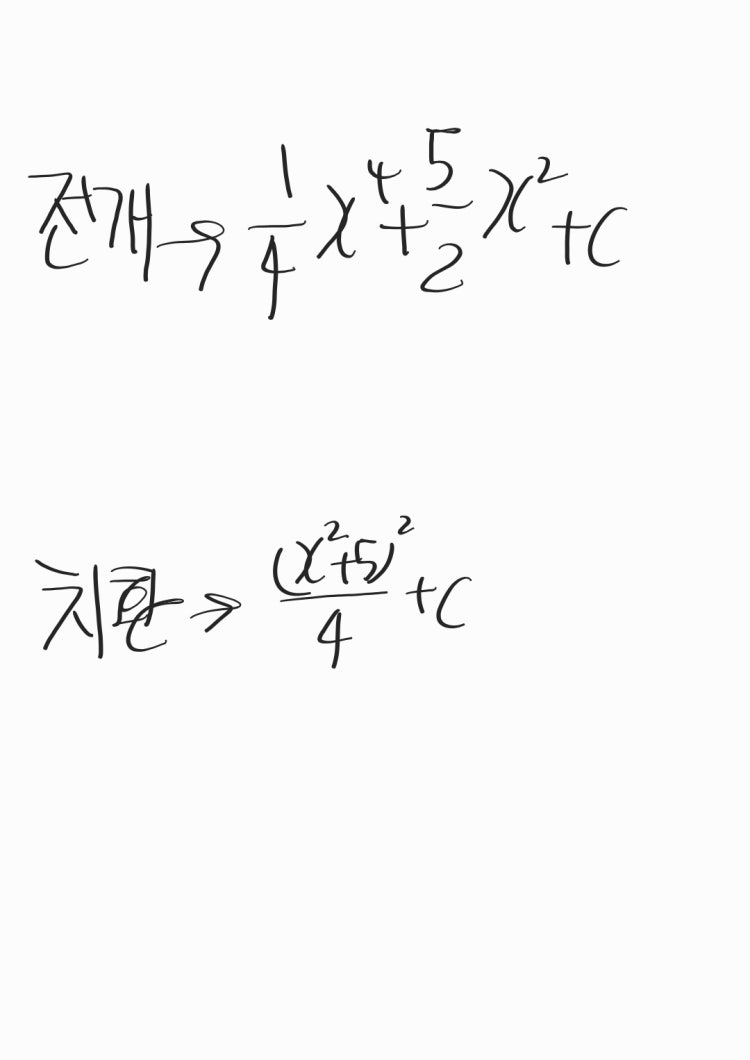 전개→ 1/4 x⁴+5/2 x²+C
치환→ (x²+5)²/4 +C